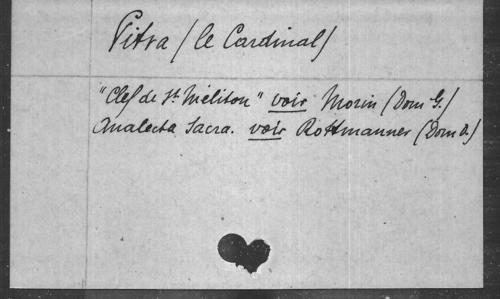 Pitra (le Cardinal)
"Clef de St Méliton" voir Morin (Dom G.)
Analecta Sacra. voir Rottmanner (Dom O.)